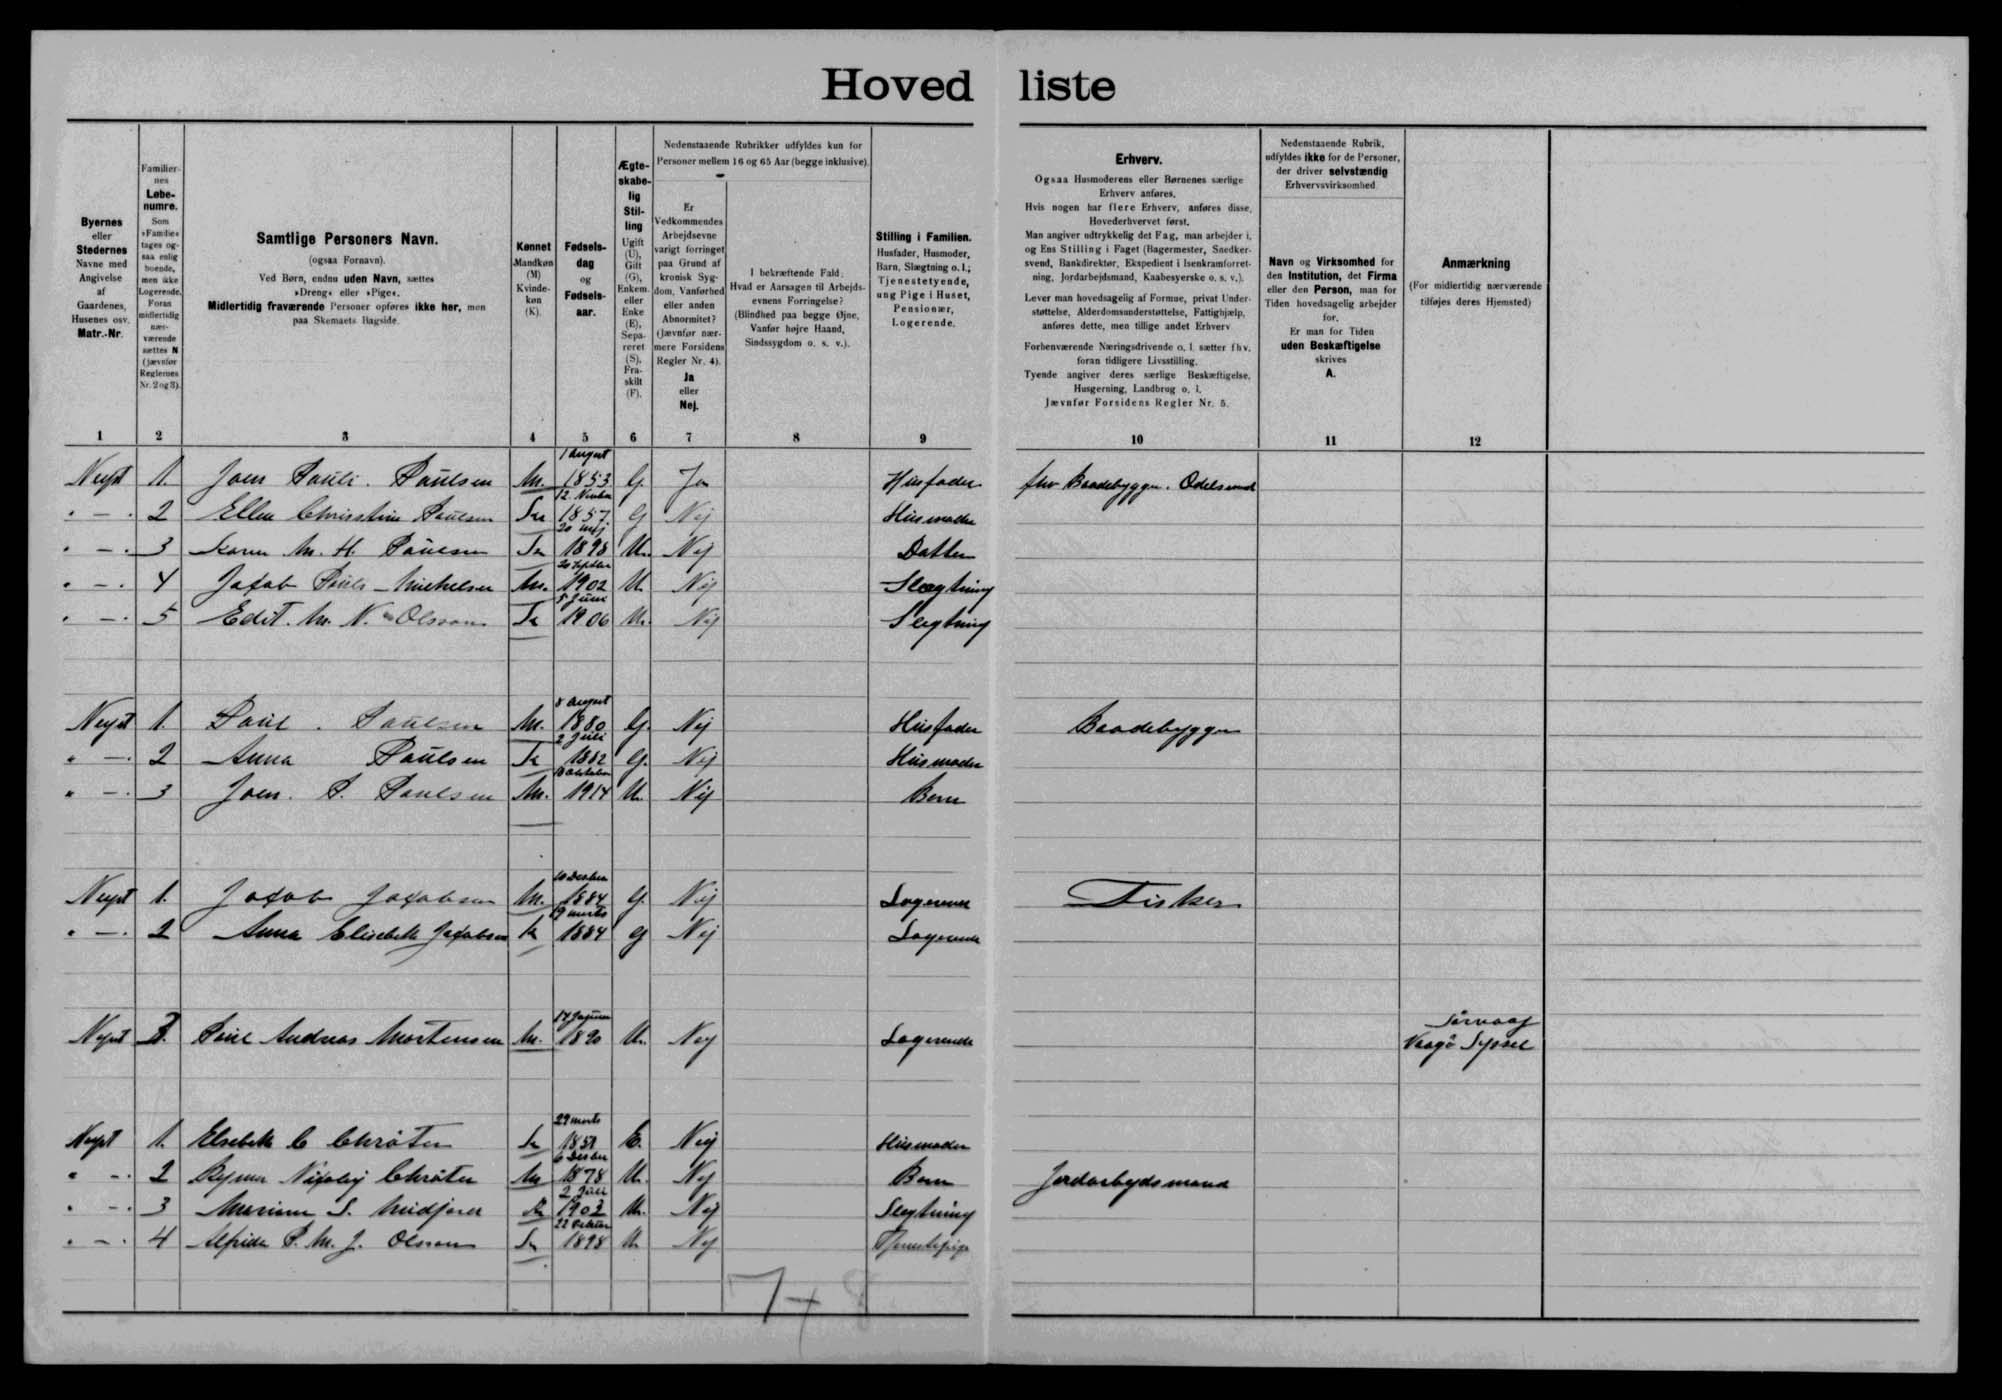 Hoved liste
Byernes
eller
Stedernes
Navne med
Angivelse
af
Gaardenes,
Husenes osv.
Matr.-Nr.
Familier-
nes
Løbe-
numre.
Som
»Familie«
tages og-
saa enlig
boende,
men ikke
Logerende.
Foran
midlertidig
nær-
værende
sættes N
(jævnfør
Reglernes
Nr. 2 og 3).
Samtlige Personers Navn.
(ogsaa Fornavn).
Ved Børn, endnu uden Navn, sættes
»Dreng« eller »Pige«.
Midlertidig fraværende Personer opføres ikke her, men
paa Skemaets Bagside.
Kønnet
Mandkøn
(M)
Kvinde-
køn
(K).
Fødsels-
dag
og
Fødsels-
aar.
Ægte-
skabe-
lig
Stil-
ling
Ugift
(U),
Gift
(G),
Enkem.
eller
Enke
(E),
Sepa-
reret
(S),
Fra-
skilt
(F).
Nedenstaaende Rubrikker udfyldes kun for
Personer mellem 16 og 65 Aar (begge inklusive).
Er
Vedkommendes
Arbejdsevne
varigt forringet
paa Grund af
kronisk Syg-
dom, Vanførhed
eller anden
Abnormitet?
(Jævnfør nær-
mere Forsidens
Regler Nr. 4).
Ja
eller
Nej.
I bekræftende Fald:
Hvad er Aarsagen til Arbejds-
evnens Forringelse?
(Blindhed paa begge Øjne,
Vanfør højre Haand,
Sindssygdom o. s. v.).
Stilling i Familien.
Husfader, Husmoder,
Barn, Slægtning o. l.;
Tjenestetyende,
ung Pige i Huset,
Pensionær,
Logerende.
Erhverv.
Ogsaa Husmoderens eller Børnenes særlige
Erhverv anføres.
Hvis nogen har flere Erhverv, anføres disse,
Hovederhvervet først.
Man angiver udtrykkelig det Fag, man arbejder i,
og Ens Stilling i Faget (Bagermester, Snedker-
svend, Bankdirektør, Ekspedient i Isenkramforret-
ning, Jordarbejdsmand, Kaabesyerske o. s. v.).
Lever man hovedsagelig af Formue, privat Under-
støttelse, Alderdomsunderstøttelse, Fattighjælp,
anføres dette, men tillige andet Erhverv
Forhenværende Næringsdrivende o. l. sætter fhv.
foran tidligere Livsstilling.
Tyende angiver deres særlige Beskæftigelse,
Husgerning, Landbrug o. l.
Jævnfør Forsidens Regler Nr. 5.
Nedenstaaende Rubrik,
udfyldes ikke for de Personer,
der driver selvstændig
Erhvervsvirksomhed
Navn og Virksomhed for
den Institution, det Firma
eller den Person, man for
Tiden hovedsagelig arbejder
for.
Er man for Tiden
uden Beskæftigelse
skrives
A.
Anmærkning
(For midlertidig nærværende
tilføjes deres Hjemsted)
1 2 3 4 5 6 7 8 9 10 11 12
1 August
1. Joen Pauli. Paulsen M. 1853 G. Ja Husfader fhv Baadebygger.
2 Ellen Christine Paulsen 1857 G Nej Husmoder
20 Maj
3 Karen M. H. Paulsen 1898 U. Nej Datter
4 Jakob Pauli Michelsen M. 1902 U. Nej Slægtning
5 Juni
5 Edit. M. N. Olsson 1906 U. Nej Slegtning
8 August
1. Paul. Paulsen M. 1880 G. Nej Husfader Baadebygger
2 Juli
2 Anna Paulsen 1882 G. Nej Husmoder
3 Joen. P. Paulsen M. 1914 U. Nej Barn
1. Jakob Jakobsen M. 1884 G. Nej Logerende Fisker
19 Marts
2 Anna Elisebeth Jakobsen K 1884 G Nej Logerende
Paul Andreas Mortensen M. 1890 U. Nej Logerende Sørvaag
Vaagø Syssel
29 Marts
1. Elsebeth C Chrøter E. Nej Husmoder
2 1878 U. Nej Barn Jordarbejdsmand
2 Juli
3 S. Midjord U. Nej Slegtning
4 Alfrida P. M. J. Olsson 1898 U Nej Tjenestepige
7+8